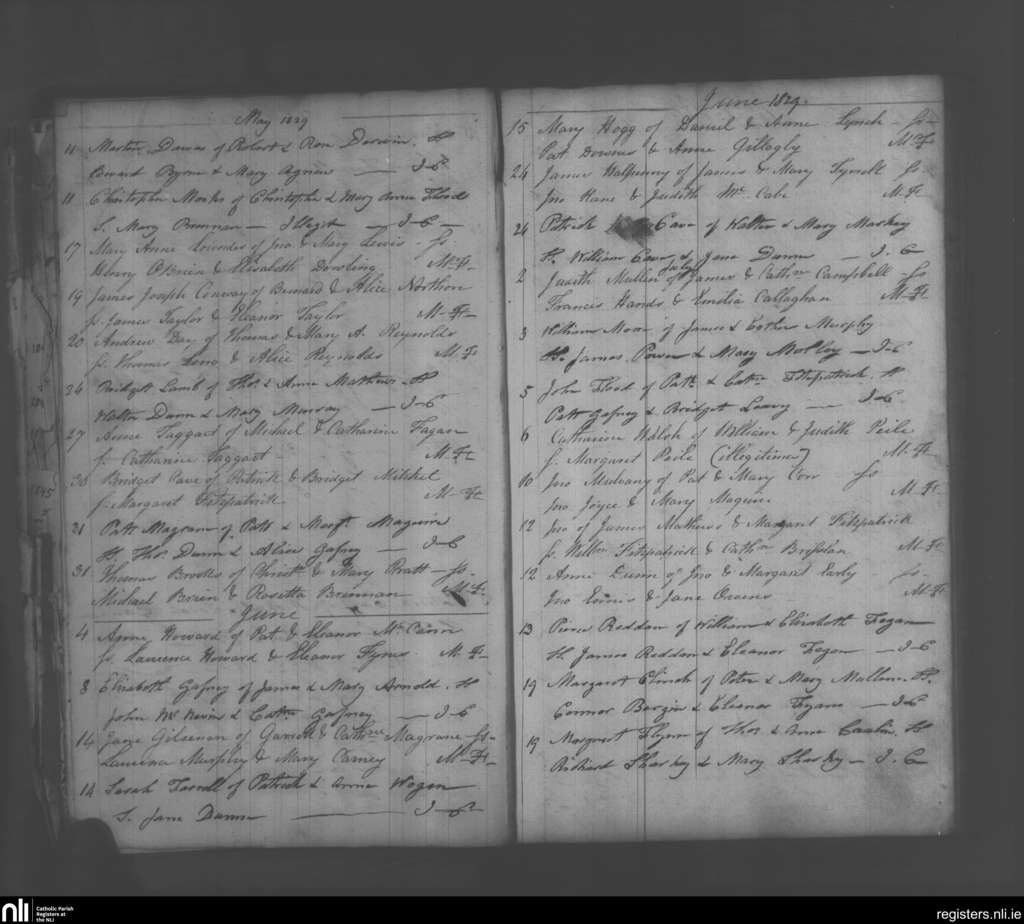 May 1829
11 Martin Dawes of Robert & Rose Darwin. Sp
Edward Byrne & Mary Agnew — J-C
11 Christopher Monks of Christophr & Mary Anne Flood
S. Mary Brennan — Illegit — J-C —
17 Mary Anne Lowndes of Jno & Mary Lewis - Ss.
Henry O'Brien & Elisabeth Dowling M-Ft-
19 James Joseph Conway of Bernard & Alice Northon
Ss. James Taylor & Eleanor Taylor M-Ft-
20 Andrew Day of Thomas & Mary A. Reynolds
Ss. Thomas & Alice Reynolds M-Ft
24 Bridget Lamb of Thos. & Anne Mathews. Sp
Walter Dunn & Mary Murray — J-C
27 Anne Taggart of Michael & Catharine Fagan
S. Catharine Taggart M-Ft
30 Bridget Cave of Patrick & Bridget Mitchel
S. Margaret Fitzpatrick M-Ft
31 Patt. Magrane of Patt. & Margt. Maguire
Sp Thos. Dunn & Alice Gafney — J-C
31 Thomas Brooks of Christr. & Mary Pratt — Ss.
Michael Brien & Rosetta Brennan M-Ft-
June
4 Anne Howard of Pat & Eleanor Mc Cann
Ss. Laurence Howard & Eleanor Tyrus. M-Ft-
8 Elisabeth Gafney of James & Mary Arnold. Sp
John Mc & Cathn. Gafney — J-C
14 Jane Gilsenan of Garrett & Catharine Magrane - Ss-
Laurence Murphy & Mary Carney M-Ft-
14 Sarah Farrell of Patrick & Anne Wogan
S. Jane Dunne — J-C
June 1829.
15 Mary Hogg of Daniel & Anne Lynch - Ss-
Pat Downes & Anne Gillogly M-Ft
24 James Halfpenny of James & Mary Tyrrell Ss.
Jno Kane & Judith Mc. Cabe M-Ft
24 Patrick Cave of Walter & Mary Mackey
Sp. William Cave & Jane Dunne — J. C
July
2 Judith Mullen of James & Cathne Campbell - Ss
Francis Hands & Emilia Callaghan M-Ft
3 William Moore of James & Esther Murphy
Sp. James Power & Mary Molloy — J-C
5 John Flood of Patk. & Cathn. Fitzpatrick. Sp
Patt Gafney & Bridget Leavy — J-C
6 Catharine Walsh of William & Judith Peile
S. Margaret Peile (illegitime) M-Ft-
10 Jno Mulvany of Pat & Mary Corr - Ss
Jno Joyce & Mary Maguire M-Ft.
12 Jno of James Mathews & Margaret Fitzpatrick
Ss. William Fitzpatrick & Cathn. M-Ft.
12 Anne Dunn of Jno & Margaret Early - Ss-
Jno & Jane M-Ft
13 Pierce Reddan of William & Elisabeth Fagan
Sp. James Reddan & Eleanor Fagan — J-C
19 Margaret Clinch of Peter & Mary Mullen. Sp.
Connor Bergin & Eleanor — J-C
19 Margaret Flynn of Thos. & Anne Sp
Richard Sharkey & Mary Sharkey — J. C
nli
Catholic Parish
Registers at
the NLI
registers.nli.ie